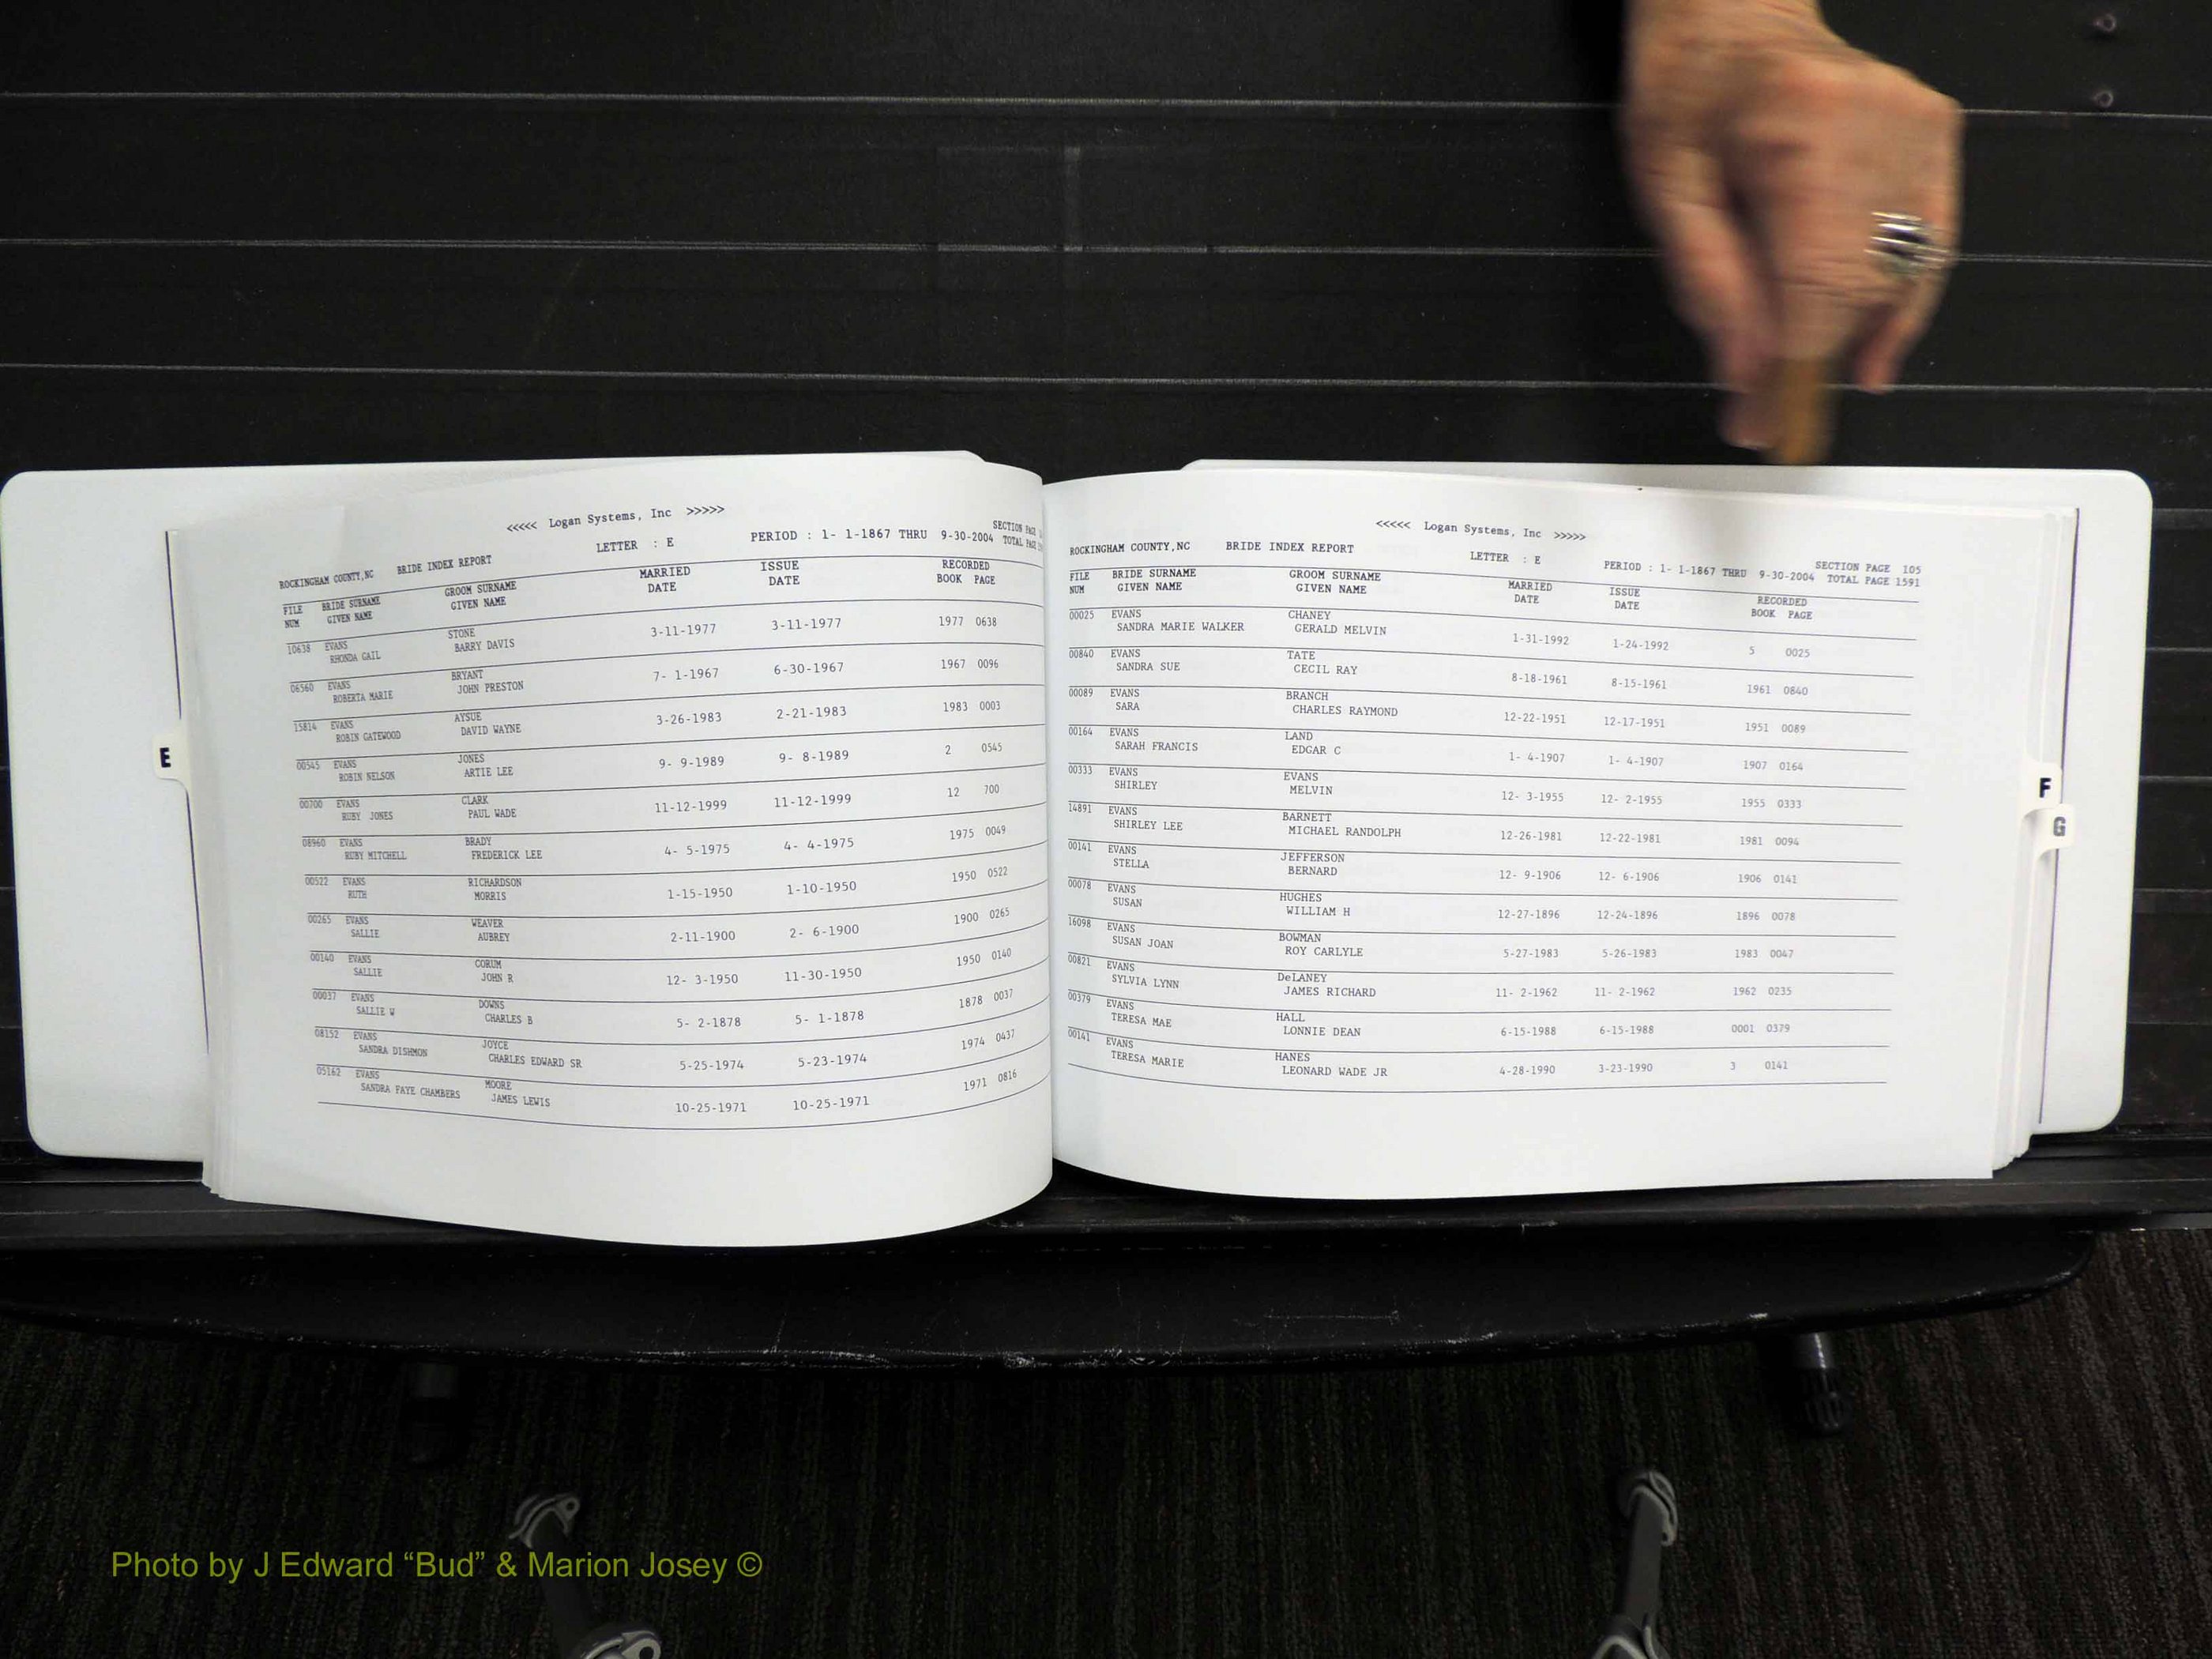 <<<<< Logan Systems, Inc >>>>>
SECTION PAGE
ROCKINGHAM COUNTY,NC BRIDE INDEX REPORT LETTER : E PERIOD : 1- 1-1867 THRU 9-30-2004 TOTAL PAGE
FILE BRIDE SURNAME GROOM SURNAME MARRIED ISSUE RECORDED
NUM GIVEN NAME GIVEN NAME DATE DATE BOOK PAGE
10638 EVANS STONE
RHONDA GAIL BARRY DAVIS 3-11-1977 3-11-1977 1977 0638
06560 EVANS BRYANT
ROBERTA MARIE JOHN PRESTON 7- 1-1967 6-30-1967 1967 0096
15814 EVANS AYSUE
ROBIN GATEWOOD DAVID WAYNE 3-26-1983 2-21-1983 1983 0003
00545 EVANS JONES
ROBIN NELSON ARTIE LEE 9- 9-1989 9- 8-1989 2 0545
00700 EVANS CLARK
RUBY JONES PAUL WADE 11-12-1999 11-12-1999 12 700
08960 EVANS BRADY
RUBY MITCHELL FREDERICK LEE 4- 5-1975 4- 4-1975 1975 0049
00522 EVANS RICHARDSON
RUTH MORRIS 1-15-1950 1-10-1950 1950 0522
00265 EVANS WEAVER
SALLIE AUBREY 2-11-1900 2- 6-1900 1900 0265
00140 EVANS CORUM
SALLIE JOHN R 12- 3-1950 11-30-1950 1950 0140
00037 EVANS DOWNS
SALLIE W CHARLES B 5- 2-1878 5- 1-1878 1878 0037
08152 EVANS JOYCE
SANDRA DISHMON CHARLES EDWARD SR 5-25-1974 5-23-1974 1974 0437
05162 EVANS MOORE
SANDRA FAYE CHAMBERS JAMES LEWIS 10-25-1971 10-25-1971 1971 0816
E
<<<<< Logan Systems, Inc >>>>>
SECTION PAGE 105
ROCKINGHAM COUNTY,NC BRIDE INDEX REPORT LETTER : E PERIOD : 1- 1-1867 THRU 9-30-2004 TOTAL PAGE 1591
FILE BRIDE SURNAME GROOM SURNAME MARRIED ISSUE RECORDED
NUM GIVEN NAME GIVEN NAME DATE DATE BOOK PAGE
00025 EVANS CHANEY
SANDRA MARIE WALKER GERALD MELVIN 1-31-1992 1-24-1992 5 0025
00840 EVANS TATE
SANDRA SUE CECIL RAY 8-18-1961 8-15-1961 1961 0840
00089 EVANS BRANCH
SARA CHARLES RAYMOND 12-22-1951 12-17-1951 1951 0089
00164 EVANS LAND
SARAH FRANCIS EDGAR C 1- 4-1907 1- 4-1907 1907 0164
00333 EVANS EVANS
SHIRLEY MELVIN 12- 3-1955 12- 2-1955 1955 0333
14891 EVANS BARNETT
SHIRLEY LEE MICHAEL RANDOLPH 12-26-1981 12-22-1981 1981 0094
00141 EVANS JEFFERSON
STELLA BERNARD 12- 9-1906 12- 6-1906 1906 0141
00078 EVANS HUGHES
SUSAN WILLIAM H 12-27-1896 12-24-1896 1896 0078
16098 EVANS BOWMAN
SUSAN JOAN ROY CARLYLE 5-27-1983 5-26-1983 1983 0047
00821 EVANS DeLANEY
SYLVIA LYNN JAMES RICHARD 11- 2-1962 11- 2-1962 1962 0235
00379 EVANS HALL
TERESA MAE LONNIE DEAN 6-15-1988 6-15-1988 0001 0379
00141 EVANS HANES
TERESA MARIE LEONARD WADE JR 4-28-1990 3-23-1990 3 0141
F
G
Photo by J Edward “Bud” & Marion Josey ©